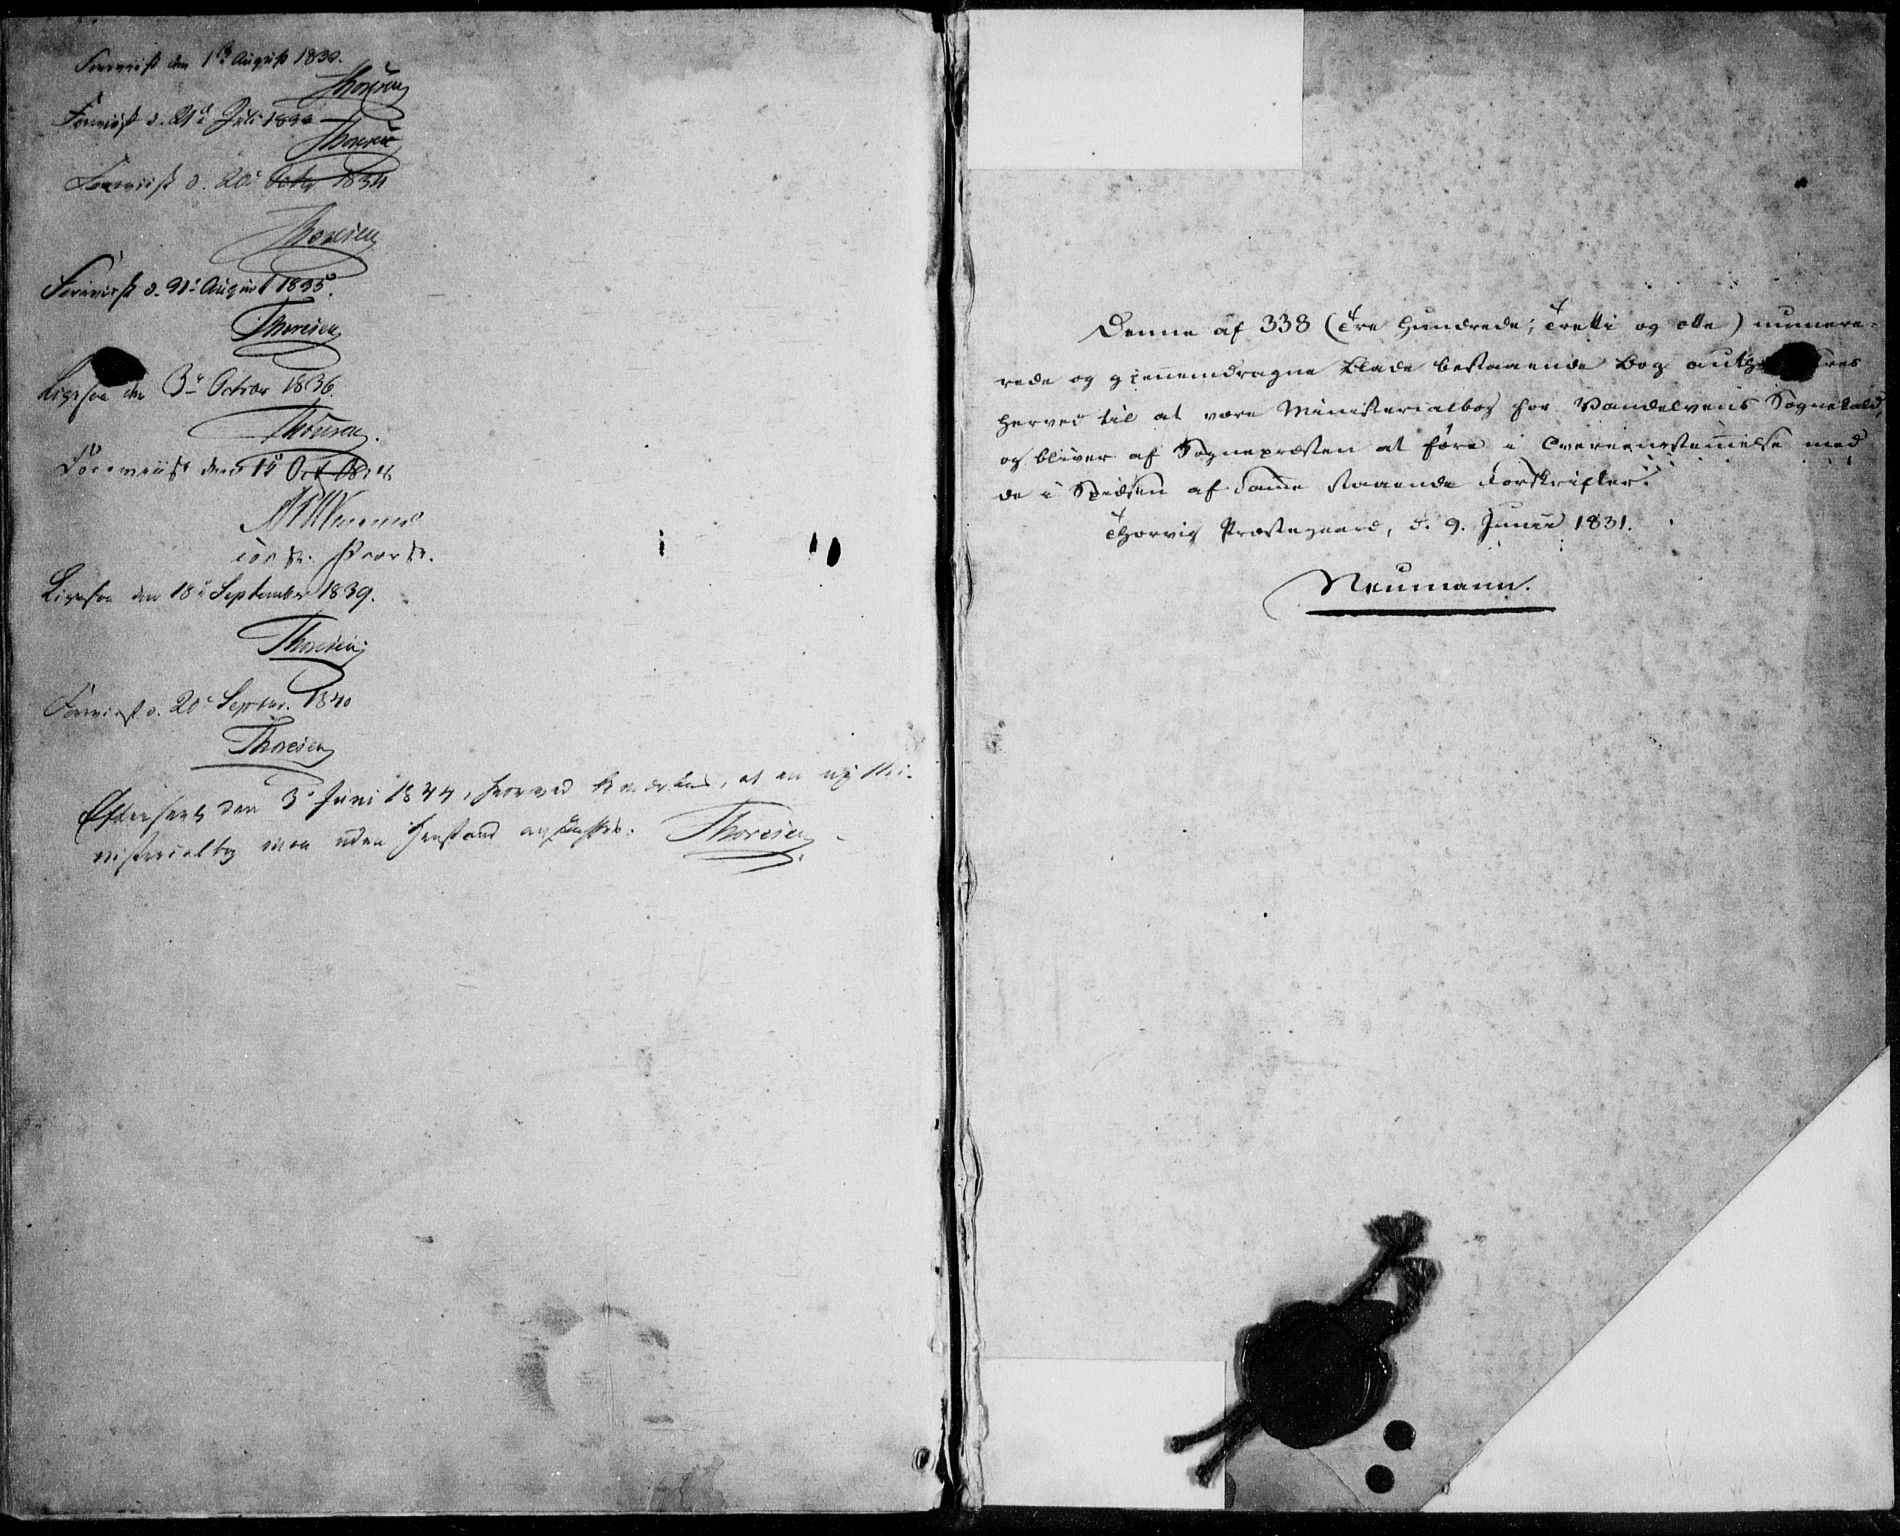 Foreviist den 1ste August 1832.
Thoresen
Foreviist d. 21d Juli
Thoresen
Foreviist d. 20de Octbr 1834
Thoresen
Foreviist d. 31d August 1835.
Thoresen
Ligesaa den 3die October 1836.
Thoresen.
Foreviist den Oct
const: Provst.
Ligesaa den 18de September 1839.
Thoresen
Foreviist d. 20de Septbr. 1840
Thoresen
Efterseet den 3die Juni 1844, hvorved bemærkes, at en ny Mi-
nisterialbog maa uden Henstand anskaffes. Thoresen
Denne af 338 (Tre Hundrede, Tretti og otte) numere-
rede og giennemdragne Blade bestaaende Bog res
herved til at være Ministerialbog for Vandelvens Sognekald,
og bliver af Sognepræsten at føre i Overeensstemmelse med
de i Spidsen af samme staaende Forskrifter.
Præstegaard, d. 9. Junii 1831.
Neumann.